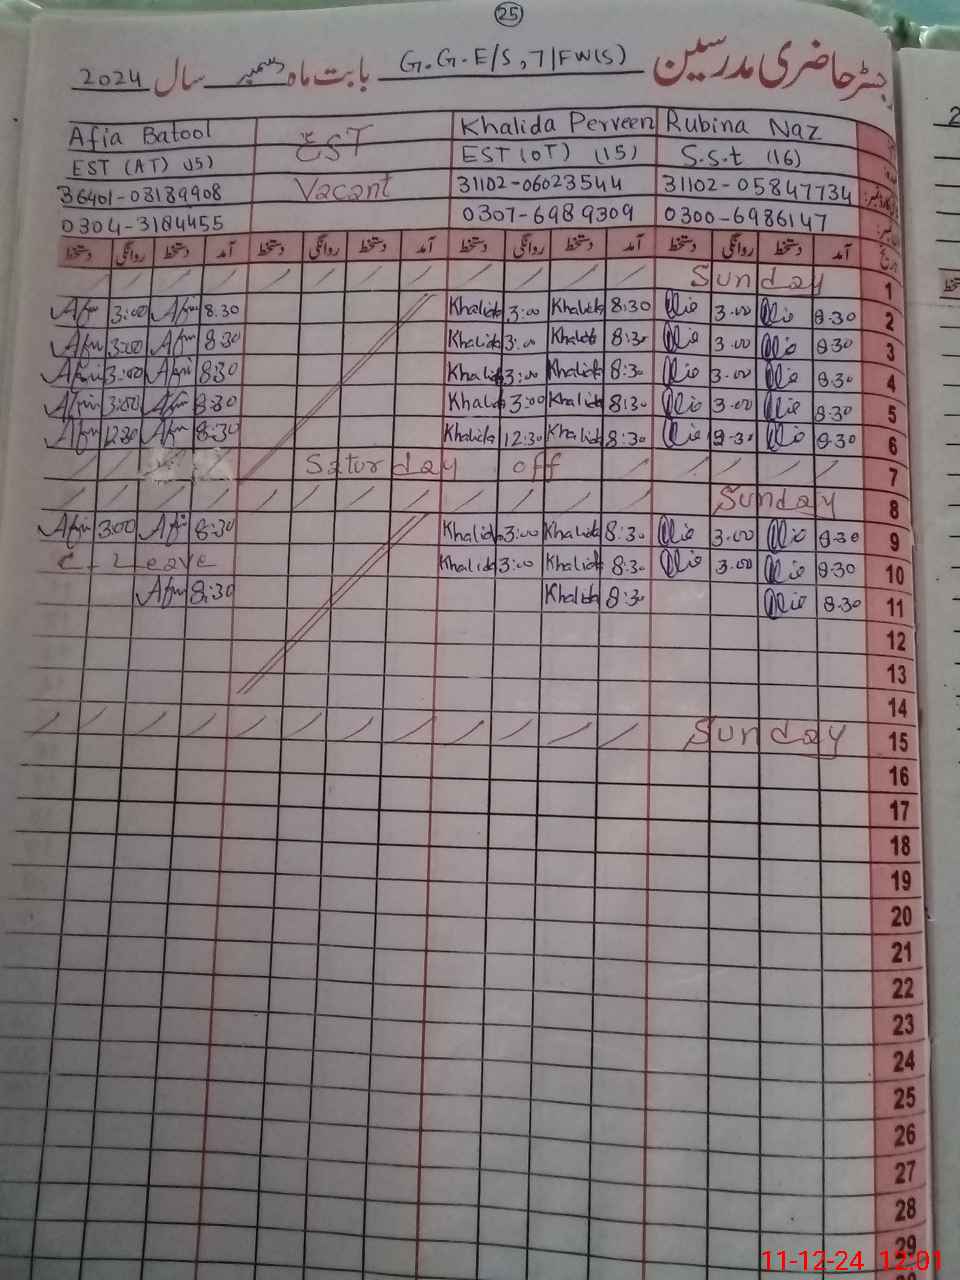 25
رجسٹر حاضری مدرسین G.G.E/S, 71FW(S) بابت ماہ دسمبر سال 2024
Afia Batool EST Khalida Perveen Rubina Naz
EST (AT) (15) Vacant EST (OT) (15) S.s.t (16)
36401-03189908 31102-06023544 31102-05847734
0304-3184455 0307-6989309 0300-6986147
آمد دستخط روانگی دستخط آمد دستخط روانگی دستخط آمد دستخط روانگی دستخط آمد دستخط روانگی دستخط
Sunday 1
3:00 8.30 Khalida 3:00 Khalida 8:30 3.00 8.30 2
3:00 8:30 Khalida 3:00 Khalida 8:30 3.00 8.30 3
3:00 8:30 Khalida 3:00 Khalida 8:30 3.00 8.30 4
3:00 8:30 Khalida 3:00 Khalida 8:30 3.00 8.30 5
12:30 8:30 Khalida 12:30 Khalida 8:30 8.30 6
Saturday off 7
Sunday 8
3:00 8:30 Khalida 3:00 Khalida 8:30 3.00 8.30 9
C-Leave Khalida 3:00 Khalida 8:30 3.00 8.30 10
8:30 Khalida 8:30 8.30 11
12
13
14
Sunday 15
16
17
18
19
20
21
22
23
24
25
26
27
28
29
11-12-24 12:01